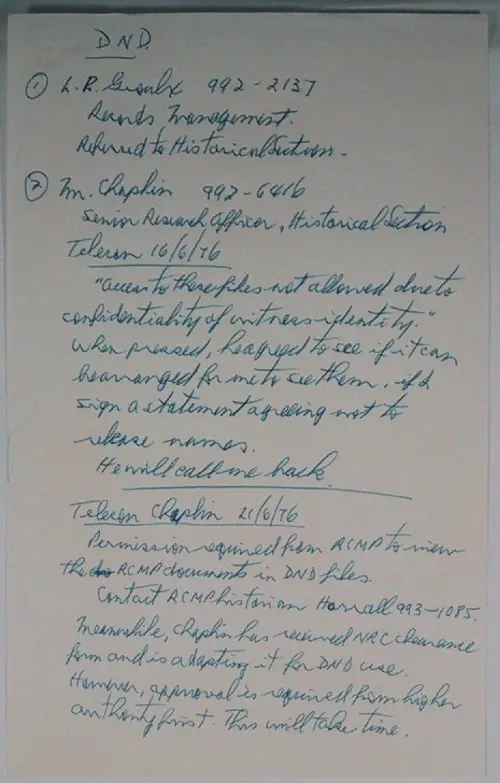 DND.
① L.R. Groulx 992-2137
Records Management.
Referred to Historical Section.
② M. Chaplin 992-6416
Senior Research Officer, Historical Section
Telecon 16/6/76
"access to these files not allowed due to
confidentiality of witness identity."
When pressed, he agreed to see if it can
be arranged for me to see them, if I
sign a statement agreeing not to
release names.
He will call me back.
Telecon Chaplin 21/6/76
Permission required from RCMP to view
the RCMP documents in DND files.
Contact RCMP historian Horrall 993-1085.
Meanwhile, Chaplin has received NRC clearance
form and is adapting it for DND use.
However, approval is required from higher
authority first. This will take time.